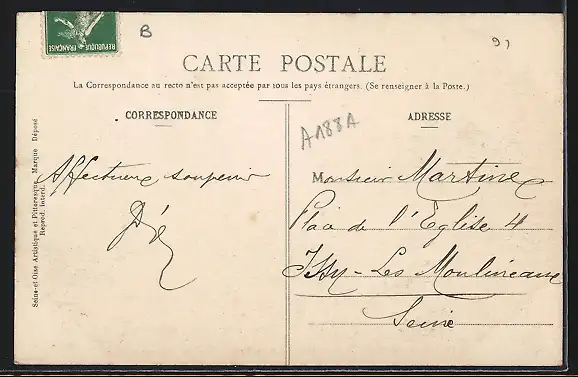 REPUBLIQUE
FRANÇAISE
B
91
CARTE POSTALE
La Correspondance au recto n'est pas acceptée par tous les pays étrangers. (Se renseigner à la Poste.)
CORRESPONDANCE
Affectueux souvenir
Seine-et Oise Artistique et Pittoresque Marque Déposé
Reprod. Interd.
ADRESSE
A188A
Monsieur Martine
Place de l'Eglise 4
Issy-Les Moulineaux
Seine